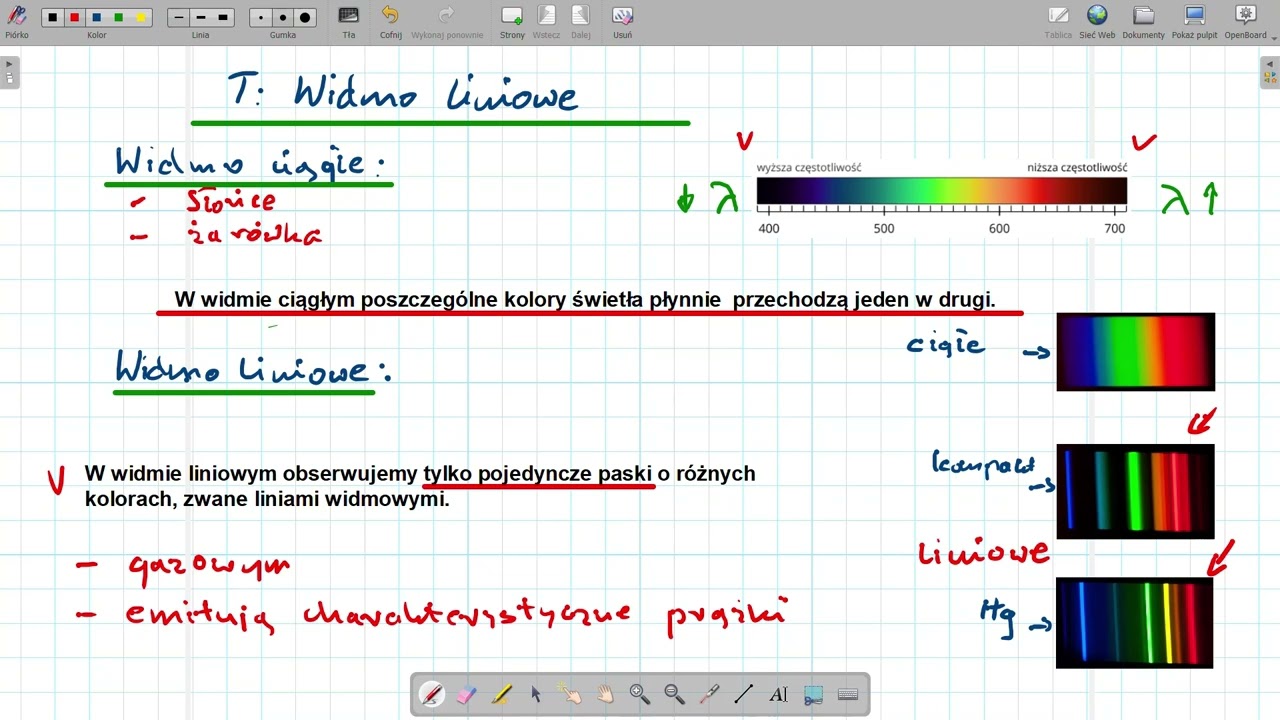 Piórko Kolor Linia Gumka Tła Cofnij Wykonaj ponownie Strony Wstecz Dalej Usuń Tablica Sieć Web Dokumenty Pokaż pulpit OpenBoard
T: Widmo liniowe
Widmo ciągłe:
- Słońce
- żarówka
wyższa częstotliwość niższa częstotliwość
↓ λ λ ↑
400 500 600 700
W widmie ciągłym poszczególne kolory świetła płynnie przechodzą jeden w drugi.
ciągłe →
Widmo liniowe:
W widmie liniowym obserwujemy tylko pojedyncze paski o różnych
kolorach, zwane liniami widmowymi.
kompakt →
liniowe
- gazowym
- emitują charakterystyczne prążki
Hg →
AI